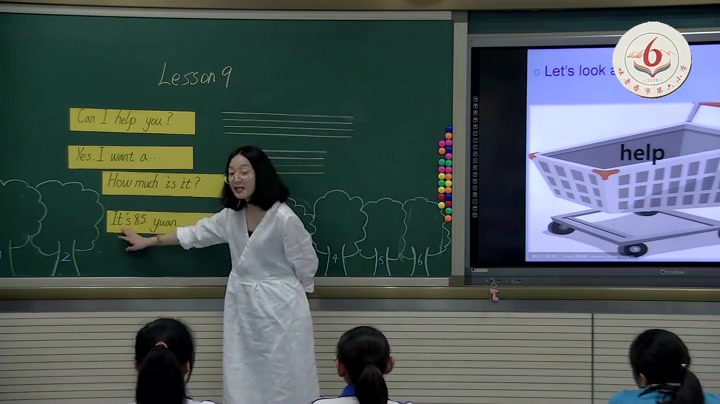 Lesson 9
Can I help you?
Yes. I want a...
How much is it?
It's 85 yuan.
2
4
5
6
Let's look a
help
6
吐鲁番市第六小学